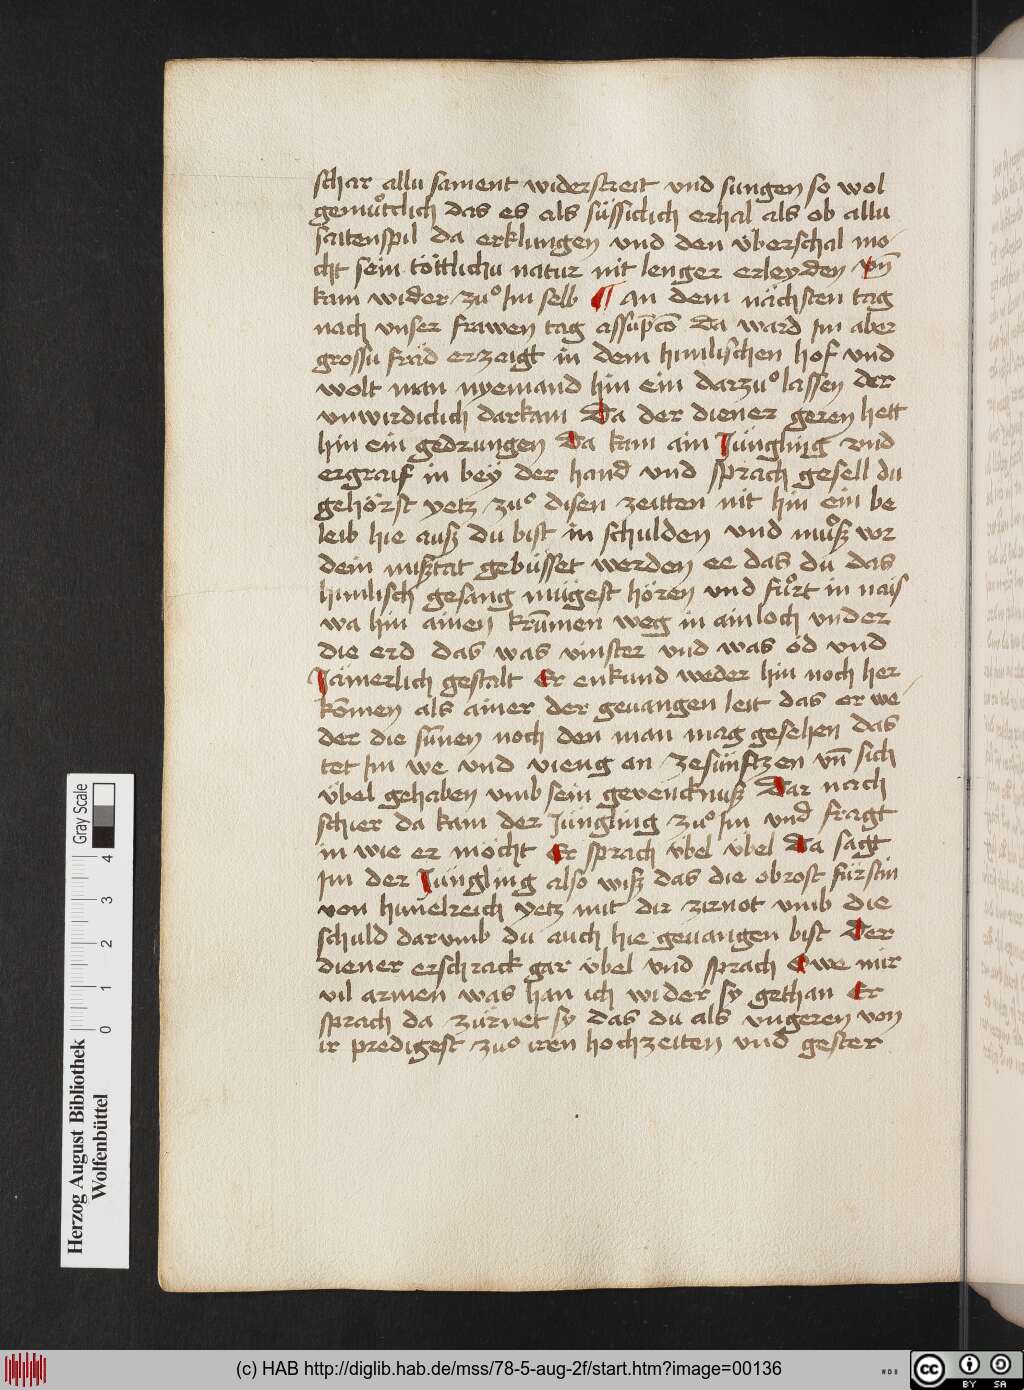 schar allu sament widerstreit vnd sungen so wol
gemuͦttlich das es als süssiclich erhal als ob allu
saitenspil da erklungen vnd den überschal mo
cht sein töttlichu natur nit lenger erleyden vn̄
kam wider zuͦ Im selb ¶ An dem nächsten tag
nach vnser frawen tag assūpcō Da ward Im aber
grossu fräd erzaigt in dem himlischen hof vnd
wolt man nyemand hin ein darzuͦ lassen der
vnwirdiclich darkam Da der diener geren hett
hin ein gedrungen Da kam ain Jüngling vnd
ergraif in bey der hand vnd sprach gesell du
gehörst yetz zuͦ disen zeitten nit hin ein be
leib hie ausz du bist in schulden vnd muͦsz vor
dein misztat gebüsset werden ee das du das
himlisch gesang mügest hören vnd fuͦrt in nais
wa hin ainen krūmen weg in ain loch vnder
die erd das was vinster vnd was öd vnd
Jämerlich gestalt Er enkund weder hin noch her
kōmen als ainer der geuangen leit das er we
der die sūnen noch den man mag gesehen das
tet Im we vnd vieng an zesünftzen vn̄ sich
übel gehaben vmb sein gevencknusz Dar nach
schier da kam der Jüngling zuͦ Im vnd fragt
in wie er mocht Er sprach übel übel Da sagt
Im der Jungling also wisz das die obrost fürstin
von himelreich yetz mit dir zirnot vmb die
schuld darvmb du auch hie geuangen bist Der
diener erschrack gar übel vnd sprach Owe mir
vil armen was han ich wider sy gethan Er
sprach da zürnet sy das du als vngeren von
ir predigest zuͦ iren hochzeiten vnd gester
Herzog August Bibliothek
Wolfenbüttel
Gray Scale
0 1 2 3 4
(c) HAB http://diglib.hab.de/mss/78-5-aug-2f/start.htm?image=00136
cc BY SA